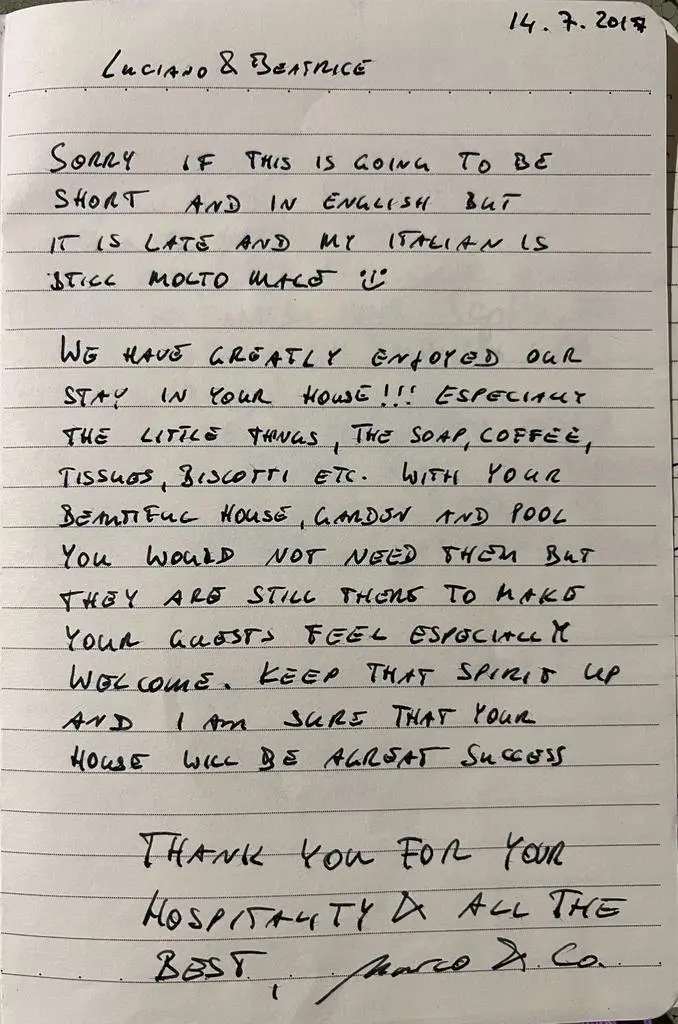 14.7.2017
LUCIANO & BEATRICE
SORRY IF THIS IS GOING TO BE
SHORT AND IN ENGLISH BUT
IT IS LATE AND MY ITALIAN IS
STILL MOLTO MALE :)
WE HAVE GREATLY ENJOYED OUR
STAY IN YOUR HOUSE!!! ESPECIALLY
THE LITTLE THINGS, THE SOAP, COFFEE,
TISSUES, BISCOTTI ETC. WITH YOUR
BEAUTIFUL HOUSE, GARDEN AND POOL
YOU WOULD NOT NEED THEM BUT
THEY ARE STILL THERE TO MAKE
YOUR GUESTS FEEL ESPECIALLY
WELCOME. KEEP THAT SPIRIT UP
AND I AM SURE THAT YOUR
HOUSE WILL BE A GREAT SUCCESS
THANK YOU FOR YOUR
HOSPITALITY & ALL THE
BEST, Marco & Co.